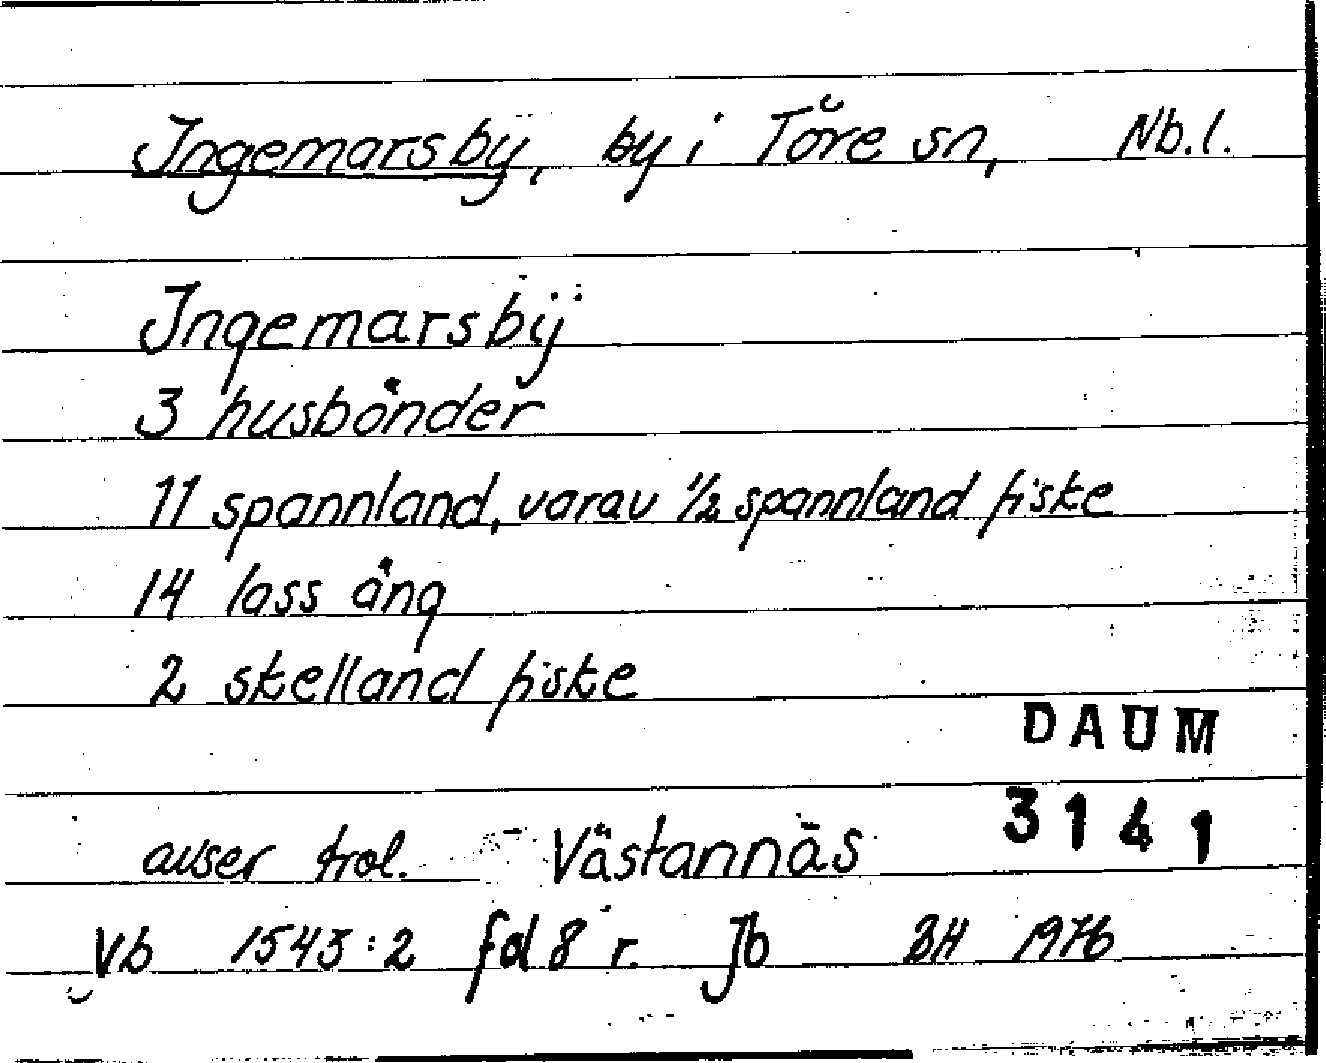 Ingemarsby, by i Töre sn, Nb.l.
Ingemarsbÿ
3 husbönder
11 spannland, varav 1/2 spannland fiske
14 lass äng
2 skelland fiske
DAUM
3141
avser trol. Västannäs
Vb 1543:2 fol 8 r. Jb BH 1976